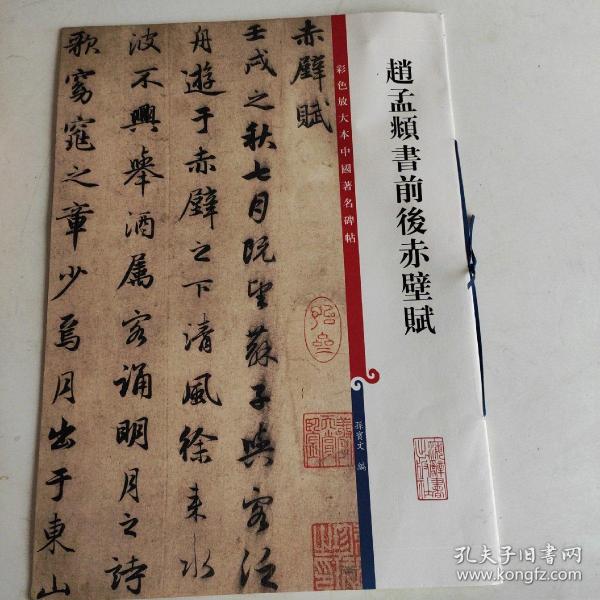 趙孟頫書前後赤壁賦
彩色放大本中國著名碑帖
孫寶文 編
赤壁賦
壬戌之秋七月既望蘇子與客泛
舟遊于赤壁之下清風徐來水
波不興舉酒属客誦明月之詩
歌窈窕之章少焉月出于東山
孔夫子旧书网
www.kongfz.com